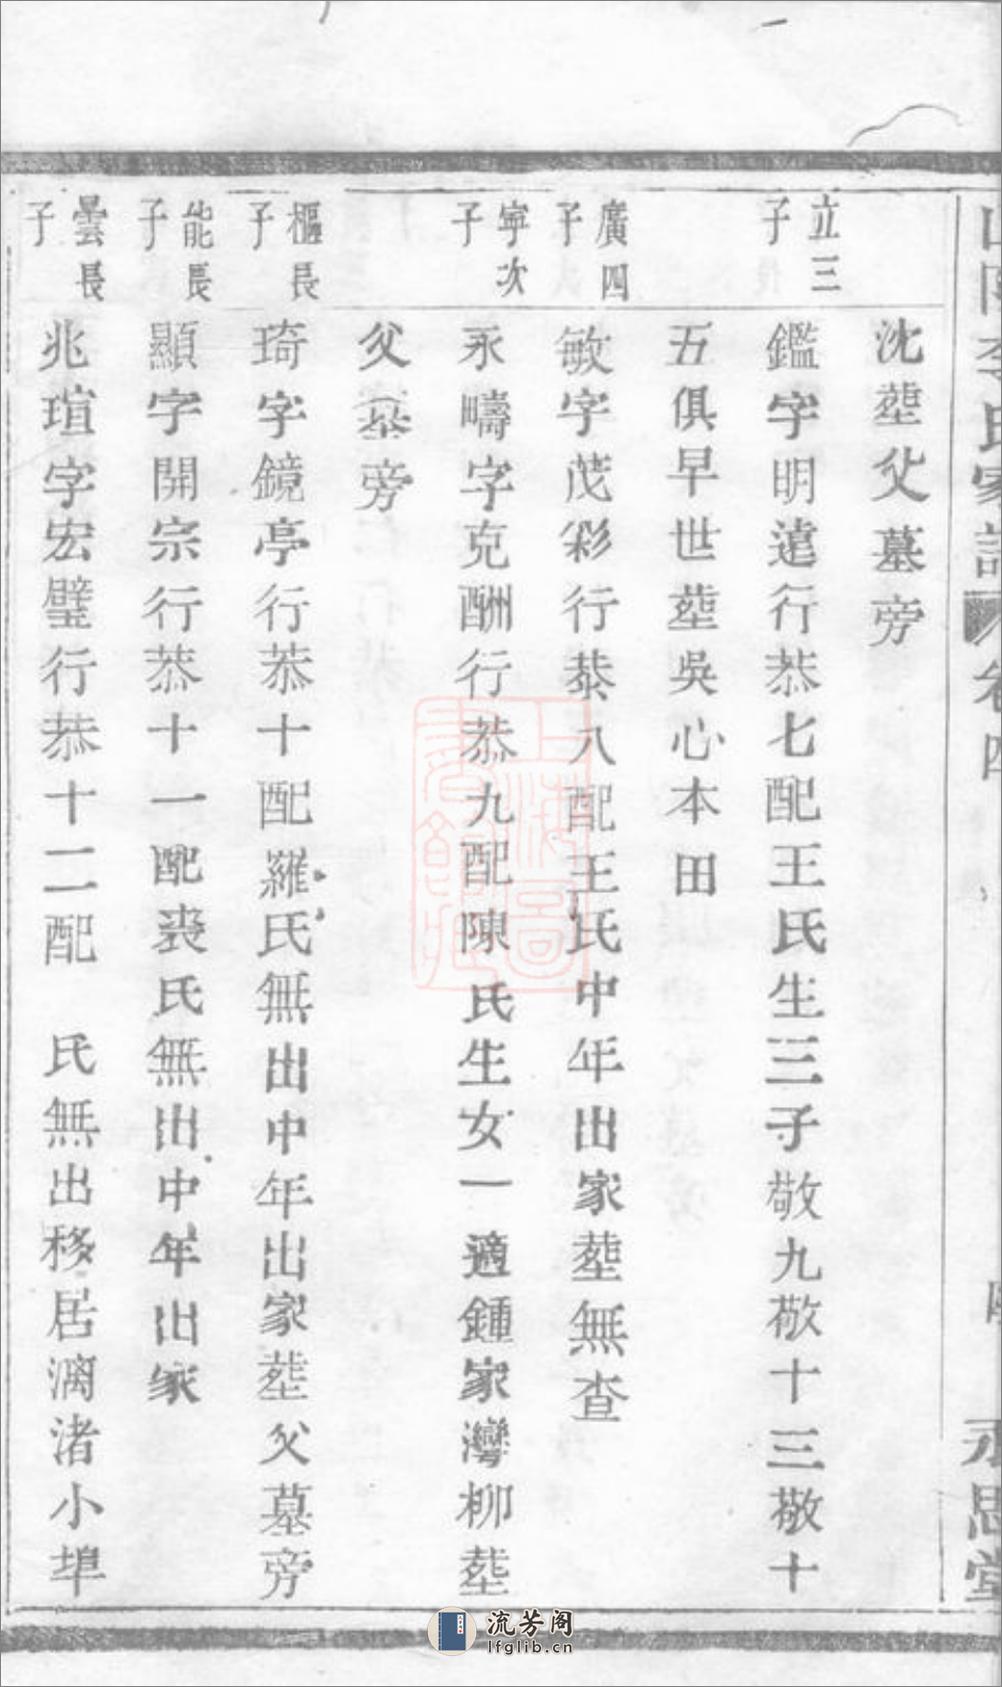 山陰李氏家譜 卷四 永思堂
沈塟父墓旁
立三子
鑑字明遠行恭七配王氏生三子敬九敬十三敬十
五俱早世塟吳心本田
廣四子
敏字茂彩行恭八配王氏中年出家塟無查
寧次子
永疇字克酬行恭九配陳氏生女一適鍾家灣柳塟
父墓旁
樞長子
琦字鏡亭行恭十配羅氏無出中年出家塟父墓旁
能長子
顯字開宗行恭十一配裘氏無出中年出家
曇長子
兆瑄字宏璧行恭十二配 氏無出移居漓渚小埠
上海圖書館藏
流芳阁
lfglib.cn